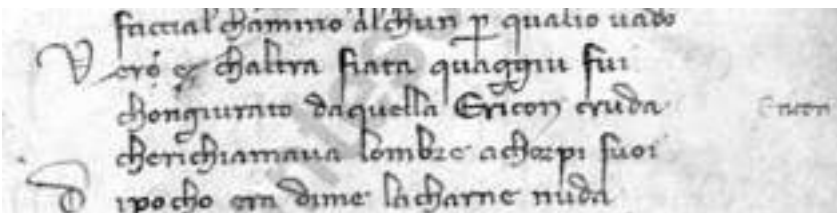 faccial chamino alchun p qualio vado
Vero e chaltra fiata quaggiu fui
chongiurato daquella Ericon cruda Ericon
cherichiamava lombre achorpi suoi
Dipocho era dime lacharne nuda